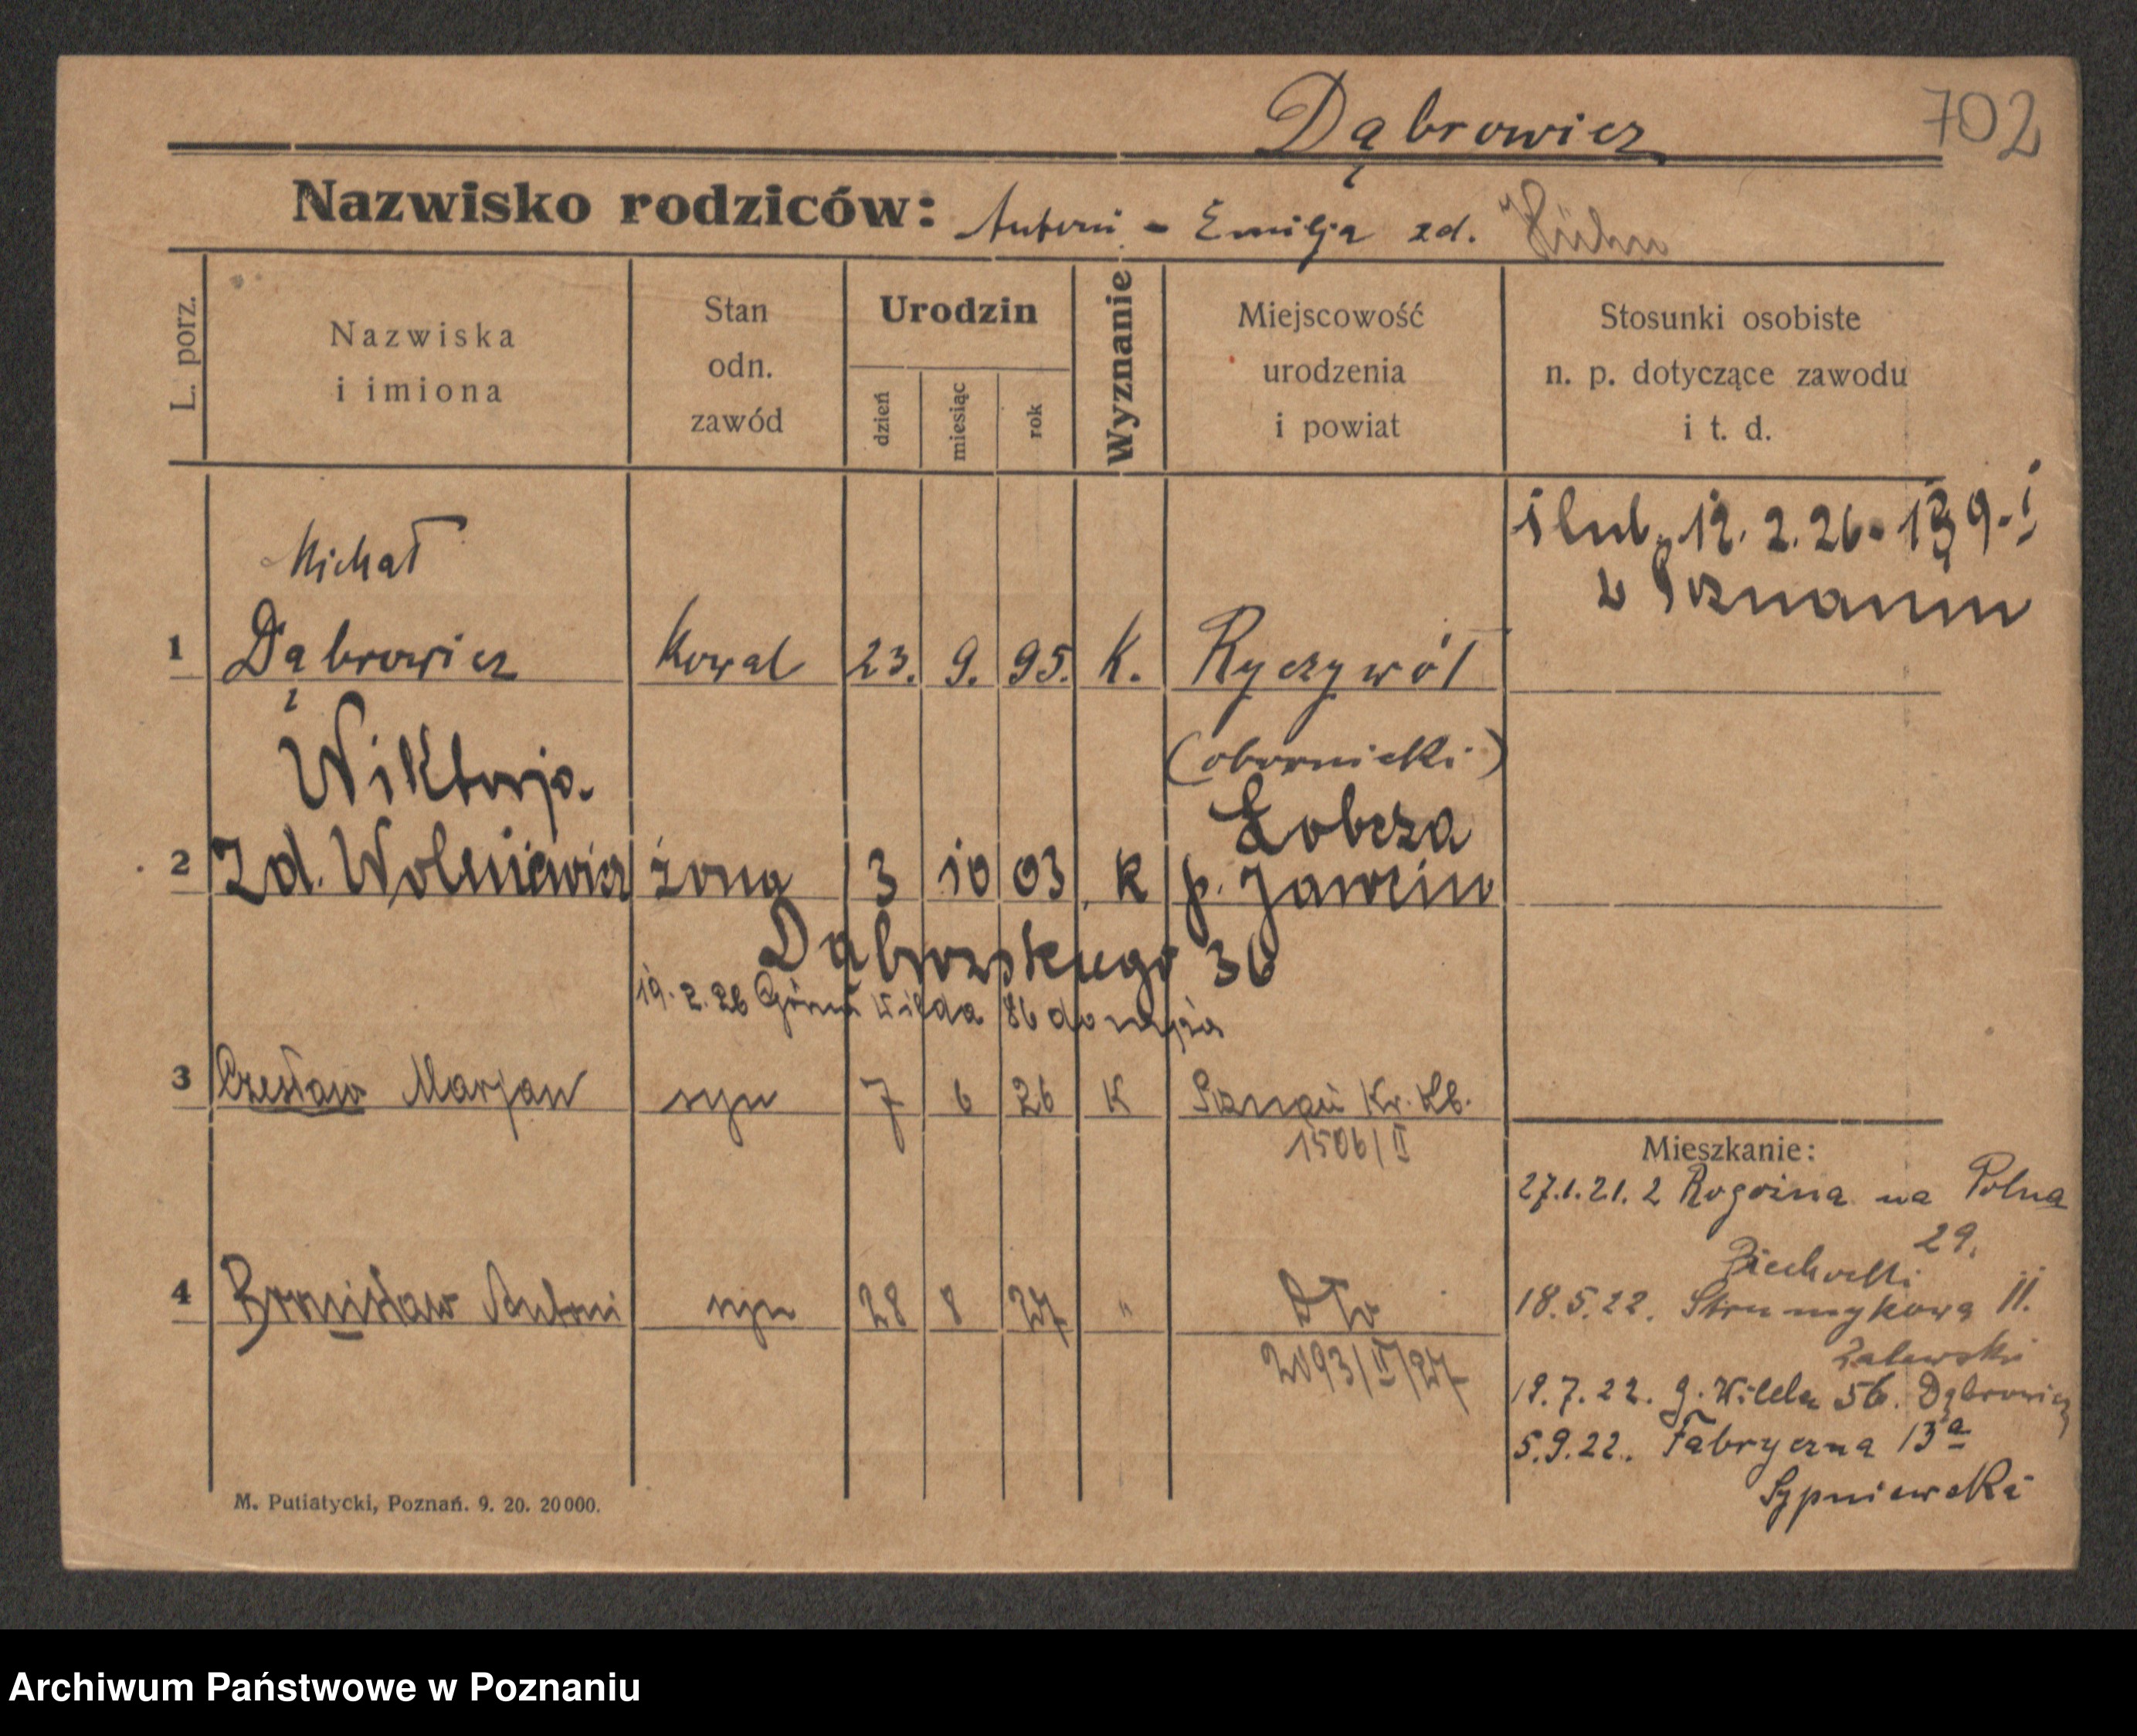 Dąbrowicz
702
Nazwisko rodziców: Antoni - Emilja zd. Kühn
L. porz.
Nazwiska
i imiona
Stan
odn.
zawód
Urodzin
dzień
miesiąc
rok
Wyznanie
Miejscowość
urodzenia
i powiat
Stosunki osobiste
n. p. dotyczące zawodu
i t. d.
ślub. 12. 2. 26 - 139 - I
w Poznaniu
Michał
1 Dąbrowicz Kowal 23. 9. 95. K. Ryczywół
(obornicki)
Wiktorja
Łobcza
2 zd. Wolniewicz żona 3 10 03 K p.
Dąbrowskiego 36
19. 2. 26 Górna Wilda 86 do męża
3 Czesław Marjan syn 7 6 26 K Poznań Kr. Lb.
1506/II
Mieszkanie:
27.1.21. z Rogoźna na Polna
29.
4 Bronisław Antoni syn 28 8 27 " Dto
2093/II/27
18.5.22. Strumykowa 11.
Zalewski
19.7.22. G. Wilda 56. Dąbrowicz
5.9.22. Fabryczna 13a
Sypniewski
M. Putiatycki, Poznań. 9. 20. 20000.
Archiwum Państwowe w Poznaniu